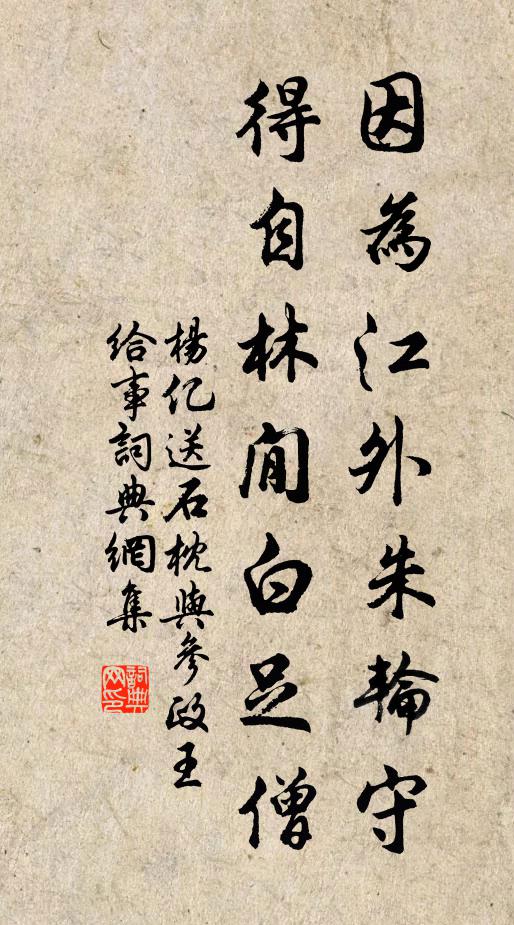 因為江外朱輪守
得自林間白足僧
楊億送石枕與參政王
給事詞典網集
詞典
网印